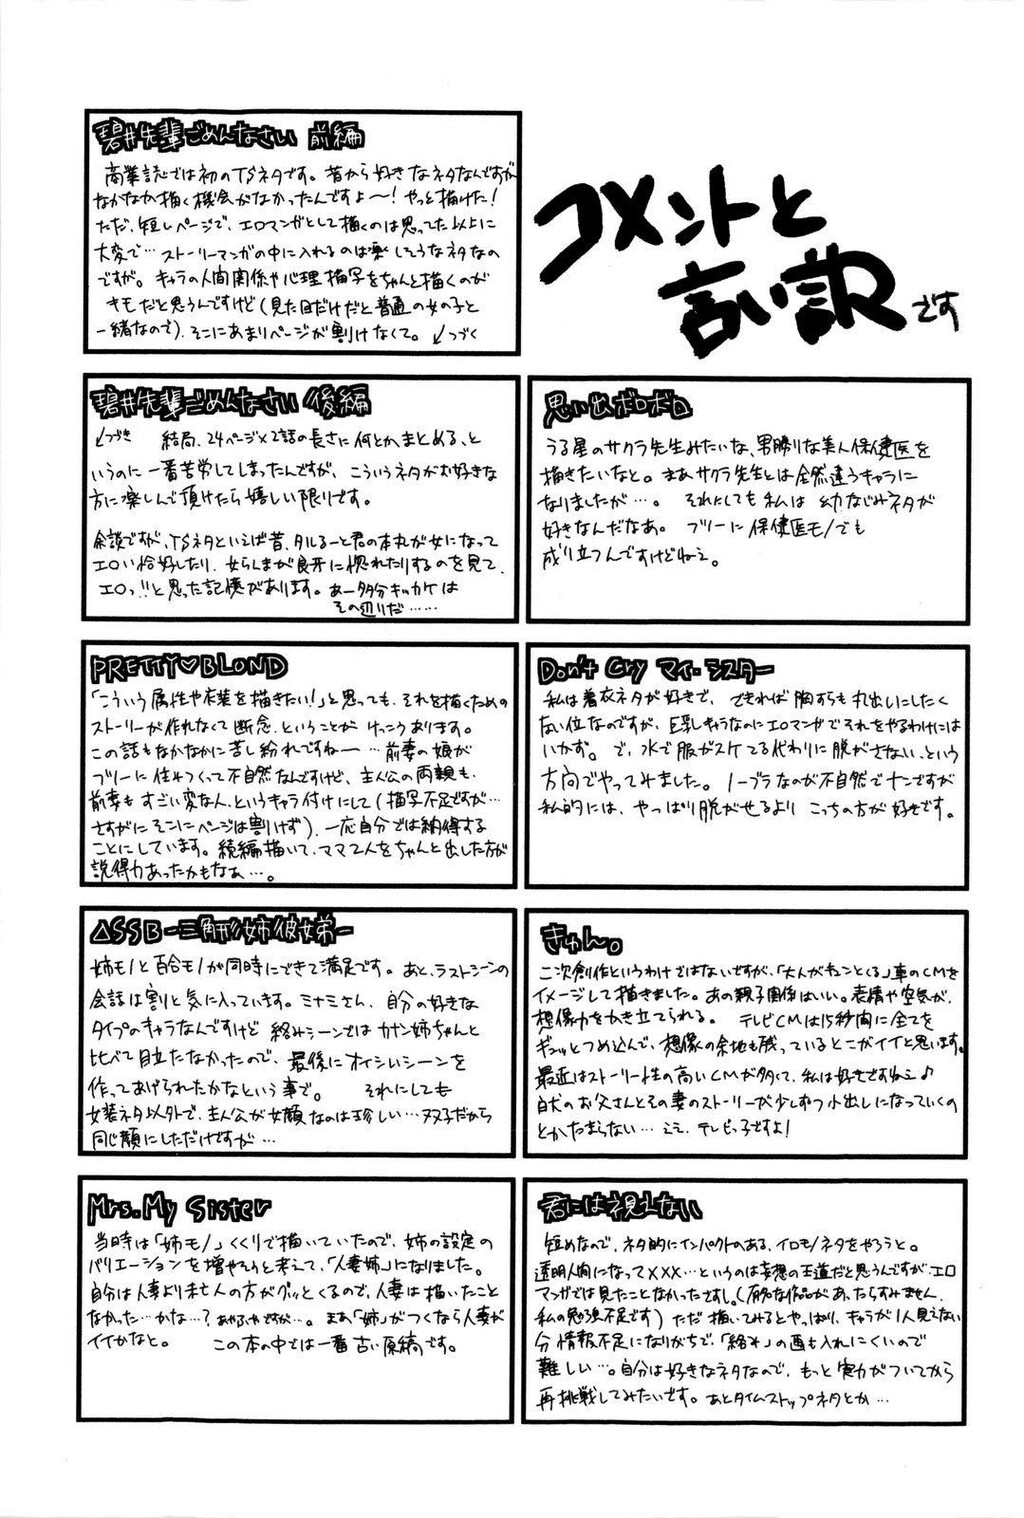 コメントと
言い訳です
碧井先輩ごめんなさい 前編
商業誌では初のTSネタです。昔から好きなネタなんですが
なかなか描く機会がなかったんですよ〜!やっと描けた!
ただ、短いページで、エロマンガとして描くのは思ってた以上に
大変で…ストーリーマンガの中に入れるのは楽しそうなネタなの
ですが。キャラの人間関係や心理描写をちゃんと描くのが
キモだと思うんですけど(見た目だけだと普通の女の子と
一緒なので)、そこにあまりページが割けなくて。↙つづく
碧井先輩ごめんなさい 後編
↖つづき 結局、24ページ×2話の長さに何とかまとめる、と
いうのに一番苦労してしまったんですが、こういうネタがお好きな
方に楽しんで頂けたら嬉しい限りです。
余談ですが、TSネタといえば昔、タルるート君の本丸が女になって
エロい恰好したり、女らしまが良牙に惚れたりするのを見て、
エロっ!!と思った記憶があります。あー多分キッカケは
その辺りだ……
思い出ボロボロ
うる星のサクラ先生みたいな、男勝りな美人保健医を
描きたいなと。まあサクラ先生とは全然違うキャラに
なりましたが…。それにしても私は幼なじみネタが
好きなんだなあ。フツーに保健医モノでも
成り立つんですけどねえ。
PRETTY♡BLOND
「こういう属性や衣装を描きたい!」と思っても、それを描くための
ストーリーが作れなくて断念、ということがけっこうあります。
この話もなかなかに苦し紛れですねー…前妻の娘が
フツーに住みつくって不自然なんですけど、主人公の両親も、
前妻もすごい変な人、というキャラ付けにして(描写不足ですが…
さすがにそこにページは割けず)、一応自分では納得する
ことにしています。続編描いて、ママ2人をちゃんと出した方が
説得力あったかもなあ…。
Don't Cry マイ・シスター
私は着衣ネタが好きで、できれば胸すらも丸出しにしたく
ない位なのですが、巨乳キャラなのにエロマンガでそれをやるわけには
いかず。で、水で服がスケてる代わりに脱がさない、という
方向でやってみました。ノーブラなのが不自然でナンですが
私的には、やっぱり脱がせるよりこっちの方が好きです。
△SSB-三角形姉彼女弟-
姉モノと百合モノが同時にできて満足です。あと、ラストシーンの
会話は割と気に入っています。ミナミさん、自分の好きな
タイプのキャラなんですけど絡みシーンではカナン姉ちゃんと
比べて目立たなかったので、最後にオイシイシーンを
作ってあげられたかなという事で。それにしても
女装ネタ以外で、主人公が女顔なのは珍しい…双子だから
同じ顔にしただけですが…
きゅん。
二次創作というわけではないですが、「大人がキュンとくる」車のCMを
イメージして描きました。あの親子関係はいい。表情や空気が、
想像力をかき立てられる。テレビCMは15秒間に全てを
ギュッとつめ込んで、想像の余地も残っているとこがイイと思います。
最近はストーリー性の高いCMが多くて、私は好きですねえ♪
白犬のお父さんとその妻のストーリーが少しずつ小出しになっていくの
とかたまらない…ええ、テレビっ子ですよ!
Mrs. My Sister
当時は「姉モノ」くくりで描いていたので、姉の設定の
バリエーションを増やそうと考えて、「人妻姉」になりました。
自分は人妻より未亡人の方がグッとくるので、人妻は描いたこと
なかった…かな…?あやふやですが…。まあ「姉」がつくなら人妻が
イイかなと。この本の中では一番古い原稿です。
君には視えない
短めなので、ネタ的にインパクトのある、イロモノネタをやろうと。
透明人間になって×××…というのは妄想の王道だと思うんですが、エロ
マンガでは見たことなかったですし。(有名な作品があったらすみません、
私の勉強不足です)ただ描いてみるとやっぱり、キャラが1人見えない
分情報不足になりがちで、「絡み」の画も入れにくいので
難しい…。自分は好きなネタなので、もっと実力がついてから
再挑戦してみたいです。あとタイムストップネタとか…